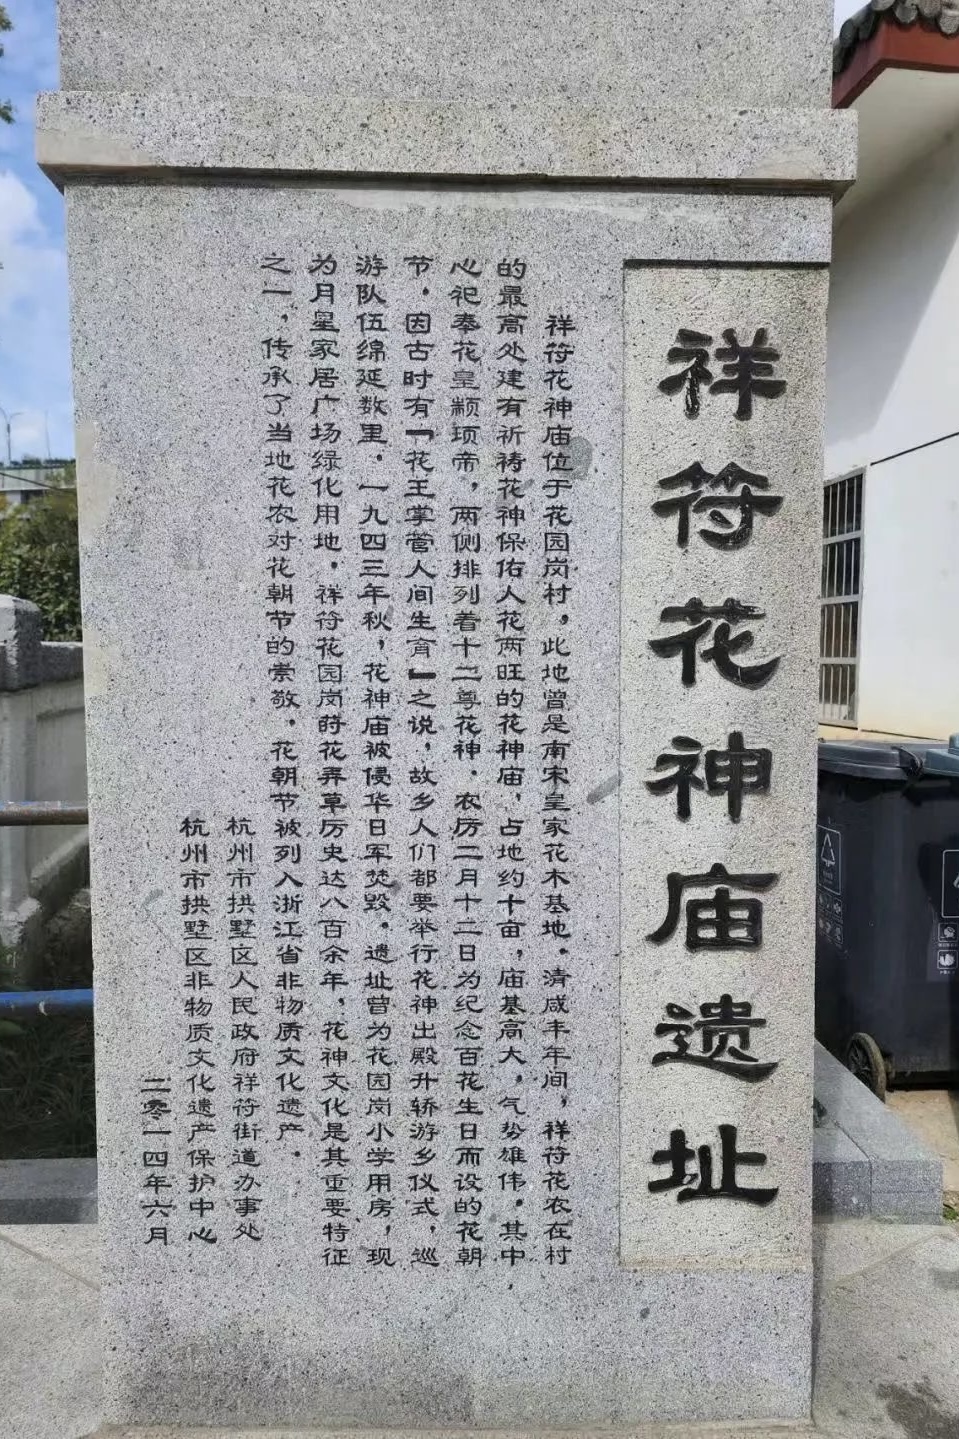 祥符花神庙遗址
祥符花神庙位于花园岗村，此地曾是南宋皇家花木基地。清咸丰年间，祥符花农在村
的最高处建有祈祷花神保佑人花两旺的花神庙，占地约十亩，庙基高大，气势雄伟。其中，
心祀奉花皇颛顼帝，两侧排列着十二尊花神。农历二月十二日为纪念百花生日而设的花朝
节，因古时有「花王掌管人间生育」之说，故乡人们都要举行花神出殿升轿游乡仪式，巡
游队伍绵延数里。一九四三年秋，花神庙被侵华日军焚毁。遗址曾为花园岗小学用房，现
为月星家居广场绿化用地。祥符花园岗莳花弄草历史达八百余年，花神文化是其重要特征
之一，传承了当地花农对花朝节的崇敬。花朝节被列入浙江省非物质文化遗产。
杭州市拱墅区人民政府祥符街道办事处
杭州市拱墅区非物质文化遗产保护中心
二零一四年六月